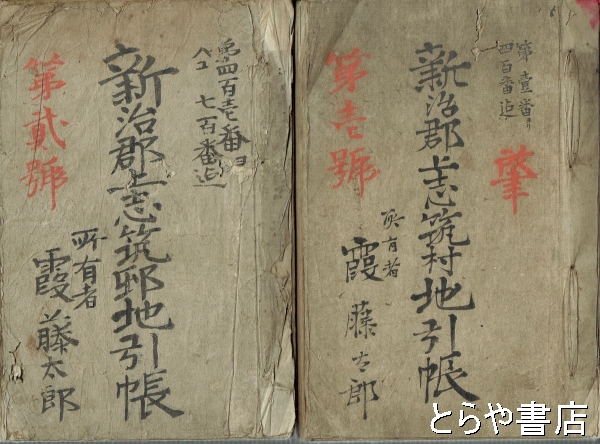 肇
第壹番ゟ
四百番迠
新治郡上志筑村地引帳
第壱號
所有者
霞藤太郎
第四百壱番ヨ
七百番迠
新治郡上志筑邨地引帳
第貳號
所有者
霞藤太郎
とらや書店